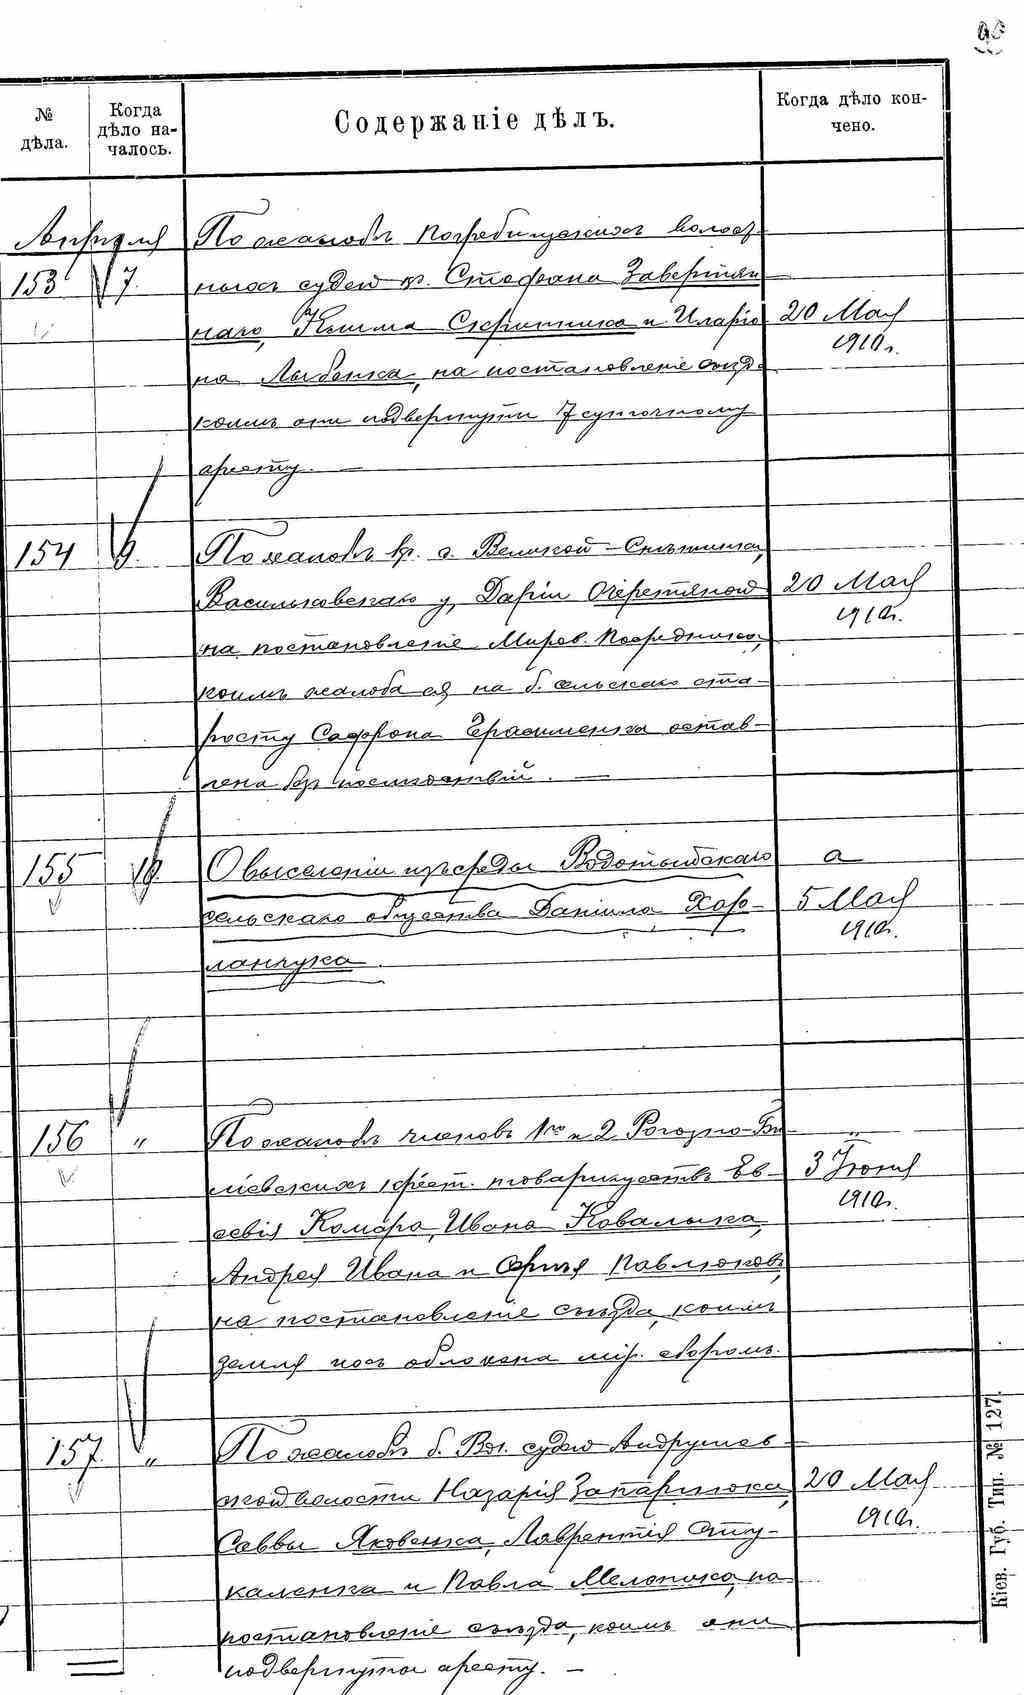 № дѣла.
Когда дѣло на-чалось.
Содержаніе дѣлъ.
Когда дѣло кон-чено.
Апрѣля
153
7.
По жалобѣ Погребищенскихъ волост-
ныхъ судей кр. Стефана Завертян
наго, Кузьма Скрипника и Иларіо-
на Лыбенка, на постановленіе съѣзда
коимъ они подвергнуты 7 суточному
аресту. —
20 Мая
1910 г.
154
9.
По жалобѣ кр. с. Великой-Снѣтинки,
Васильковскаго у, Даріи Очеретяной
на постановленіе Миров. Посредника,
коимъ жалоба ея на б. сельскаго ста-
росту Сафрона Герасименка остав-
лена безъ послѣдствій. —
20 Мая
1910г.
155
10.
О выселеніи изъ среды Водотыйскаго
сельскаго общества Даніила Хар-
ланчука.
а
5 Мая
1910г.
156
"
По жалобѣ членовъ 1го и 2 Рогозно-
крест. товариществъ Ев-
севія Комара, Ивана Ковальчка,
Андрея Ивана и Сергѣя Павлюковъ,
на постановленіе съѣзда, коимъ
земля ихъ обложена мір. сборомъ.
"
3 Іюня
1910г.
157.
"
По жалобѣ б. Вол. судей Андрушев-
ской волости Назарія Запарнюка,
Саввы Яковенка, Лаврентія Сту-
каленка и Павла Мельника, на
постановленіе съѣзда, коимъ они
подвергнуты аресту. —
20 Мая
1910г.
Кіев. Губ. Тип. № 127.